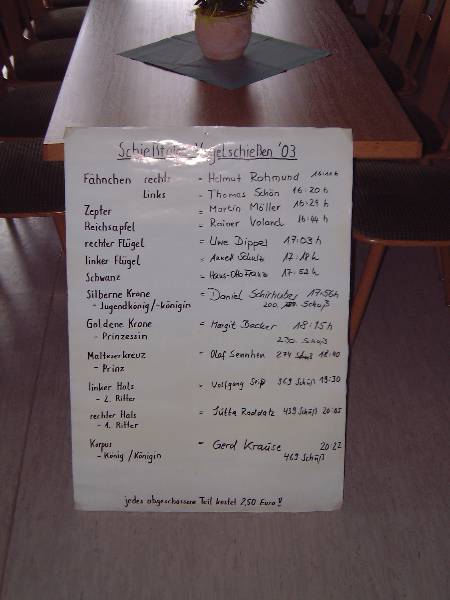 Vogelschießen '03
Fähnchen rechts = Helmut Rohmund
links = Thomas Schön 16:20 h
Zepter = Martin Möller 16:29 h
Reichsapfel = Rainer Voland 16:44 h
rechter Flügel = Uwe Dippel 17:03 h
linker Flügel = Schulz
Schwanz = Hans-Otto Franz 17:52 h
Silberne Krone = Daniel 17:56h
- Jugendkönig/-königin 200. Schuß
Goldene Krone = Margit Becker 18:15h
- Prinzessin 230. Schuß
Malteserkreuz = Olaf Sennhen 274 Schuß 18:40
- Prinz
linker Hals = Wolfgang 369 Schuß 19:30
- 2. Ritter
rechter Hals = Jutta Raddatz 439 Schuß 20:05
- 1. Ritter
Korpus = Gerd Krause 20:22
- König/Königin 469 Schuß
jedes abgeschossene Teil kostet 2,50 Euro!